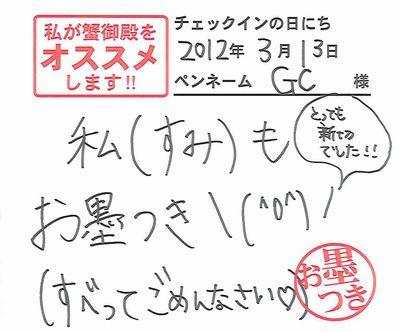 私が蟹御殿を
オススメ
します!!
チェックインの日にち
2012年 3月13日
ペンネーム GC 様
私(すみ)も
とっても
新セつ
でした!!
お墨つき \(^o^)/
(すべってごめんなさい♡)
お墨つき